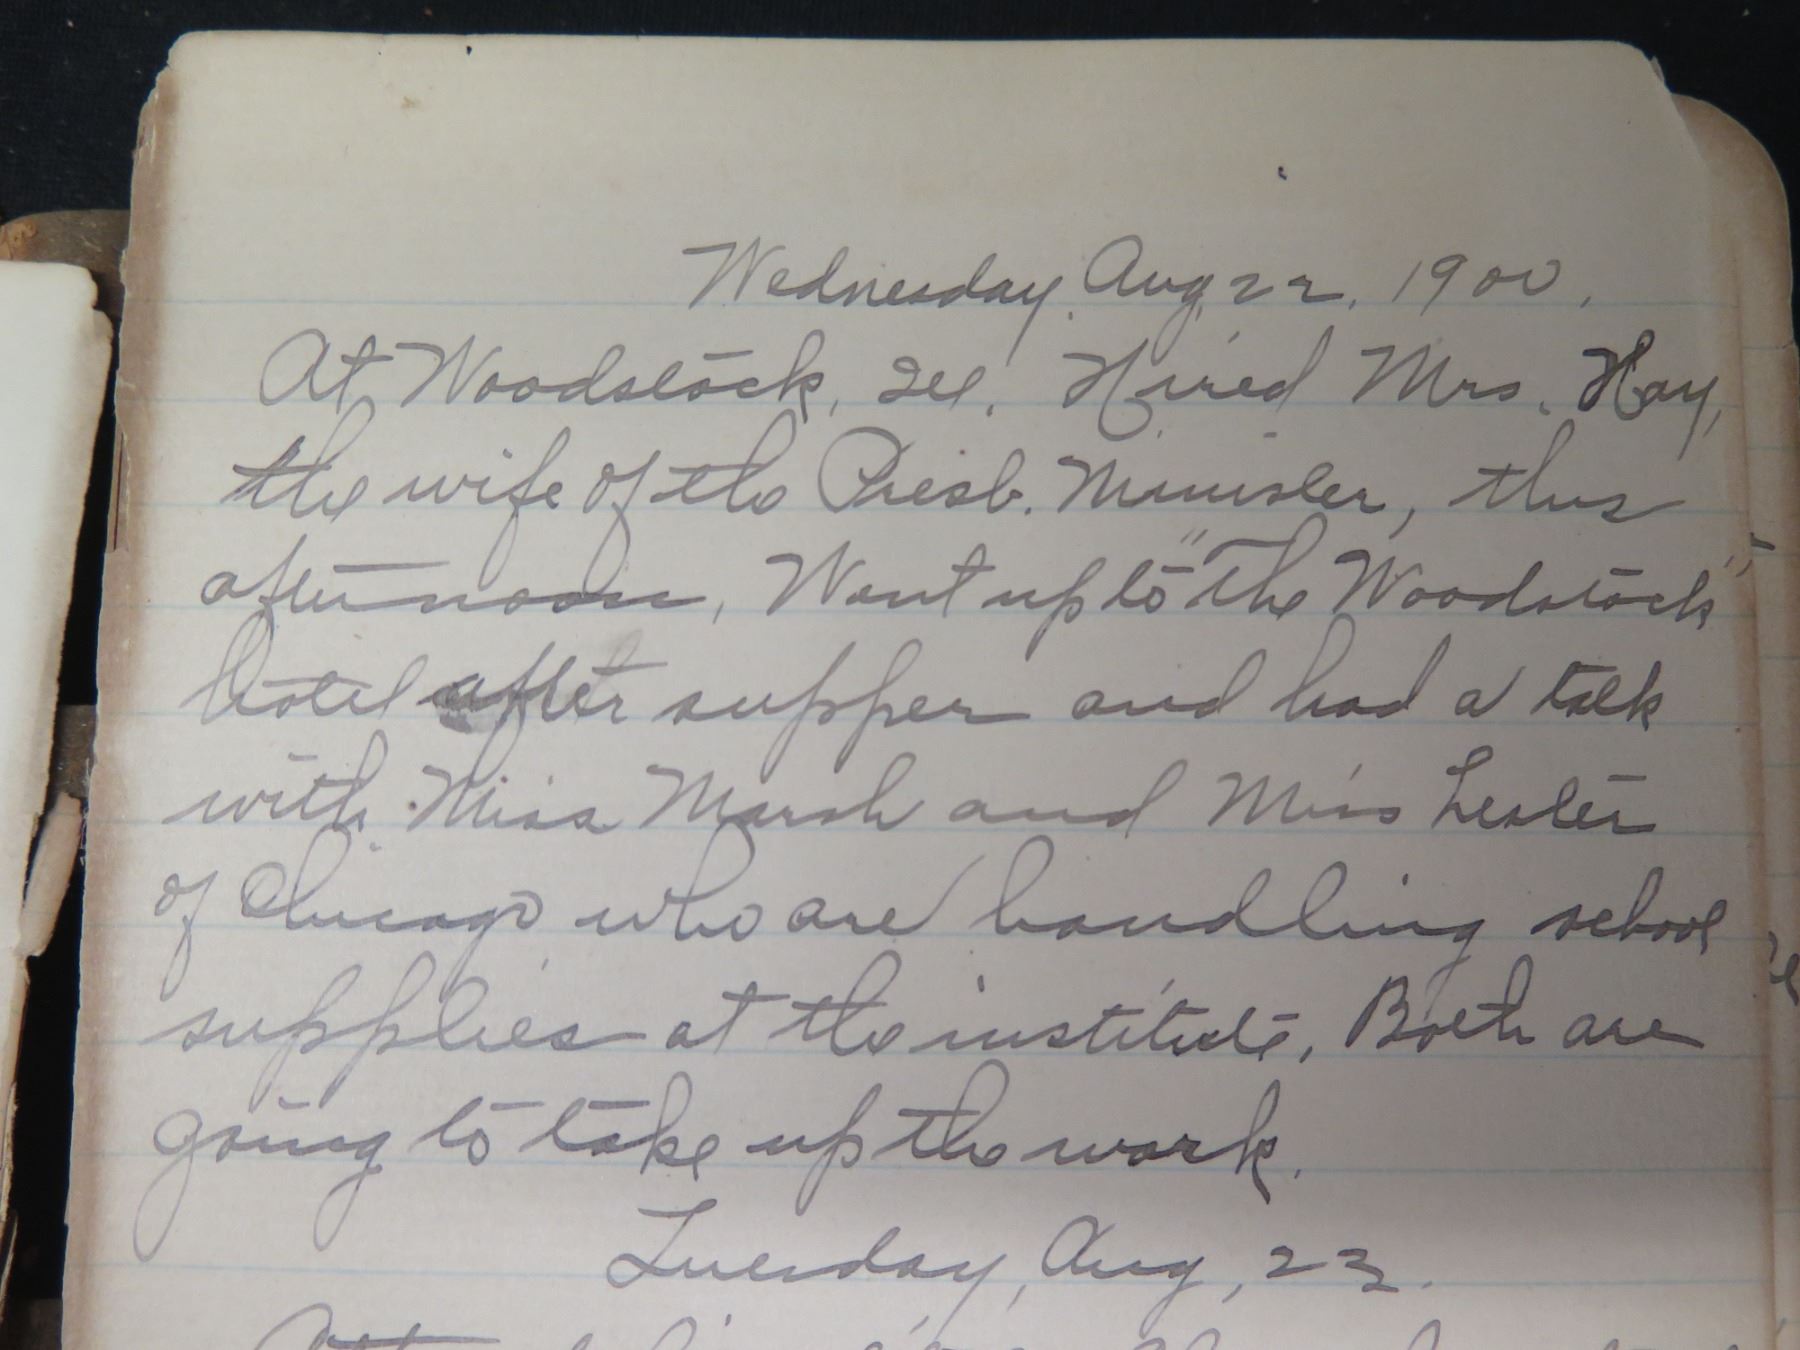 Wednesday, Aug, 22, 1900,
At Woodstock, Ill, Hired Mrs. Hay,
the wife of the Presb. Minister, this
afternoon, Went up to "The Woodstock",
hotel after supper and had a talk
with Miss Marsh and Miss Lester
of Chicago who are handling school
supplies at the institute, Both are
going to take up the work.
Tuesday, Aug, 23.